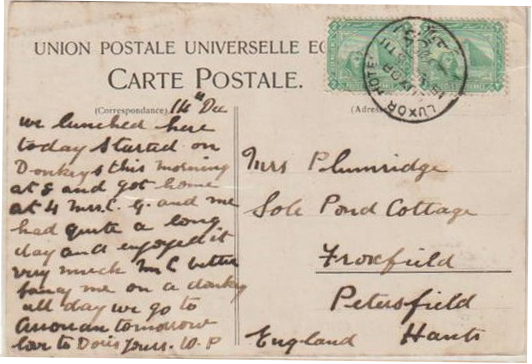 UNION POSTALE UNIVERSELLE
CARTE POSTALE.
(Correspondance)
14th Dec
we lunched here
today started on
Donkeys this morning
at 8 and got home
at 4 Mrs. C. G. and me
had quite a long
day and enjoyed it
very much Mr C better
fancy me on a donkey
all day we go to
Assouan tomorrow
love to Doris yours. W. P
Mrs Plumridge
Sole Pond Cottage
Froxfield
Petersfield
England Hants
LUXOR HOTEL